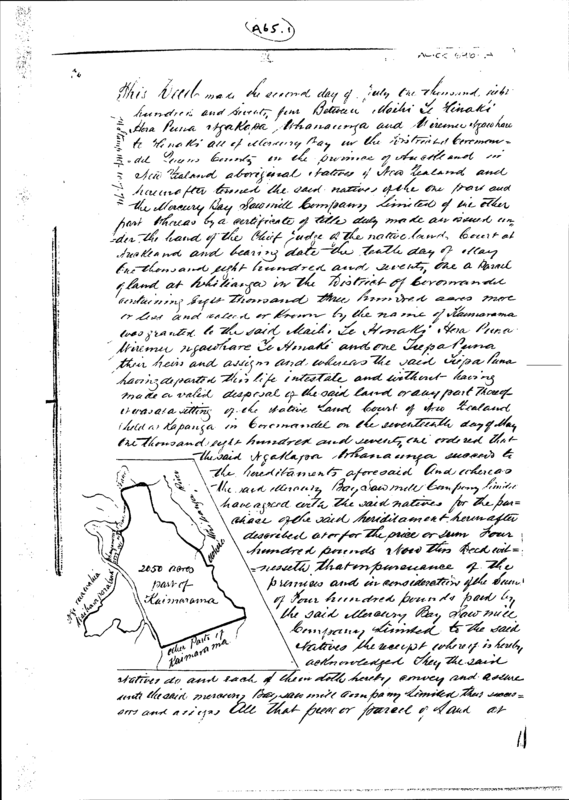 A65.1
This Deed made the second day of July One thousand eight
hundred and seventy four Between Maihi Te Hinaki
Hera Puna Ngakapa Whanaunga and Wiremu Ngawhare
Te Hinaki all of Mercury Bay in the District of Coroman-
del County in the province of Auckland in
New Zealand aboriginal Natives of New Zealand and
hereinafter termed the said natives of the one part and
the Mercury Bay Sawmill Company Limited of the other
part Whereas by a certificate of title duly made an issued un-
der the hand of the Chief Judge of the native land Court at
Auckland and bearing date the tenth day of May
One thousand eight hundred and seventy one a Parcel
of land at Whitianga in the District of Coromandel
containing Eight thousand three hundred acres more
or less and called or known by the name of Kaimarama
was granted to the said Maihi Te Hinaki Hera Puna
Wiremu ngawhare Te Hinaki and one Puna
their heirs and assigns and whereas the said Puna
having departed this life intestate and without having
made a valid disposal of the said land or any part thereof
it was at a sitting of the Native Land Court of New Zealand
held at Kapanga in Coromandel on the seventeenth day of May
One thousand eight hundred and seventy one ordered that
the said Ngakapa Whanaunga succeed to
the hereditaments aforesaid And whereas
the said Mercury Bay Saw mill Company Limited
have agreed with the said natives for the pur-
chase of the said hereditament hereinafter
described at or for the price or sum Four
hundred pounds Now this Deed wit-
nesseth that in pursuance of the
premises and in consideration of the Sum
of Four hundred pounds paid by
the said Mercury Bay Saw mill
Company Limited to the said
Natives the receipt whereof is hereby
acknowledged They the said
Natives do and each of them doth hereby convey and assure
unto the said mercury Bay saw mill Company Limited their succes-
sors and assigns All that piece or parcel of Land at
2050 acres
part of
Kaimarama
other Parts of
Kaimarama